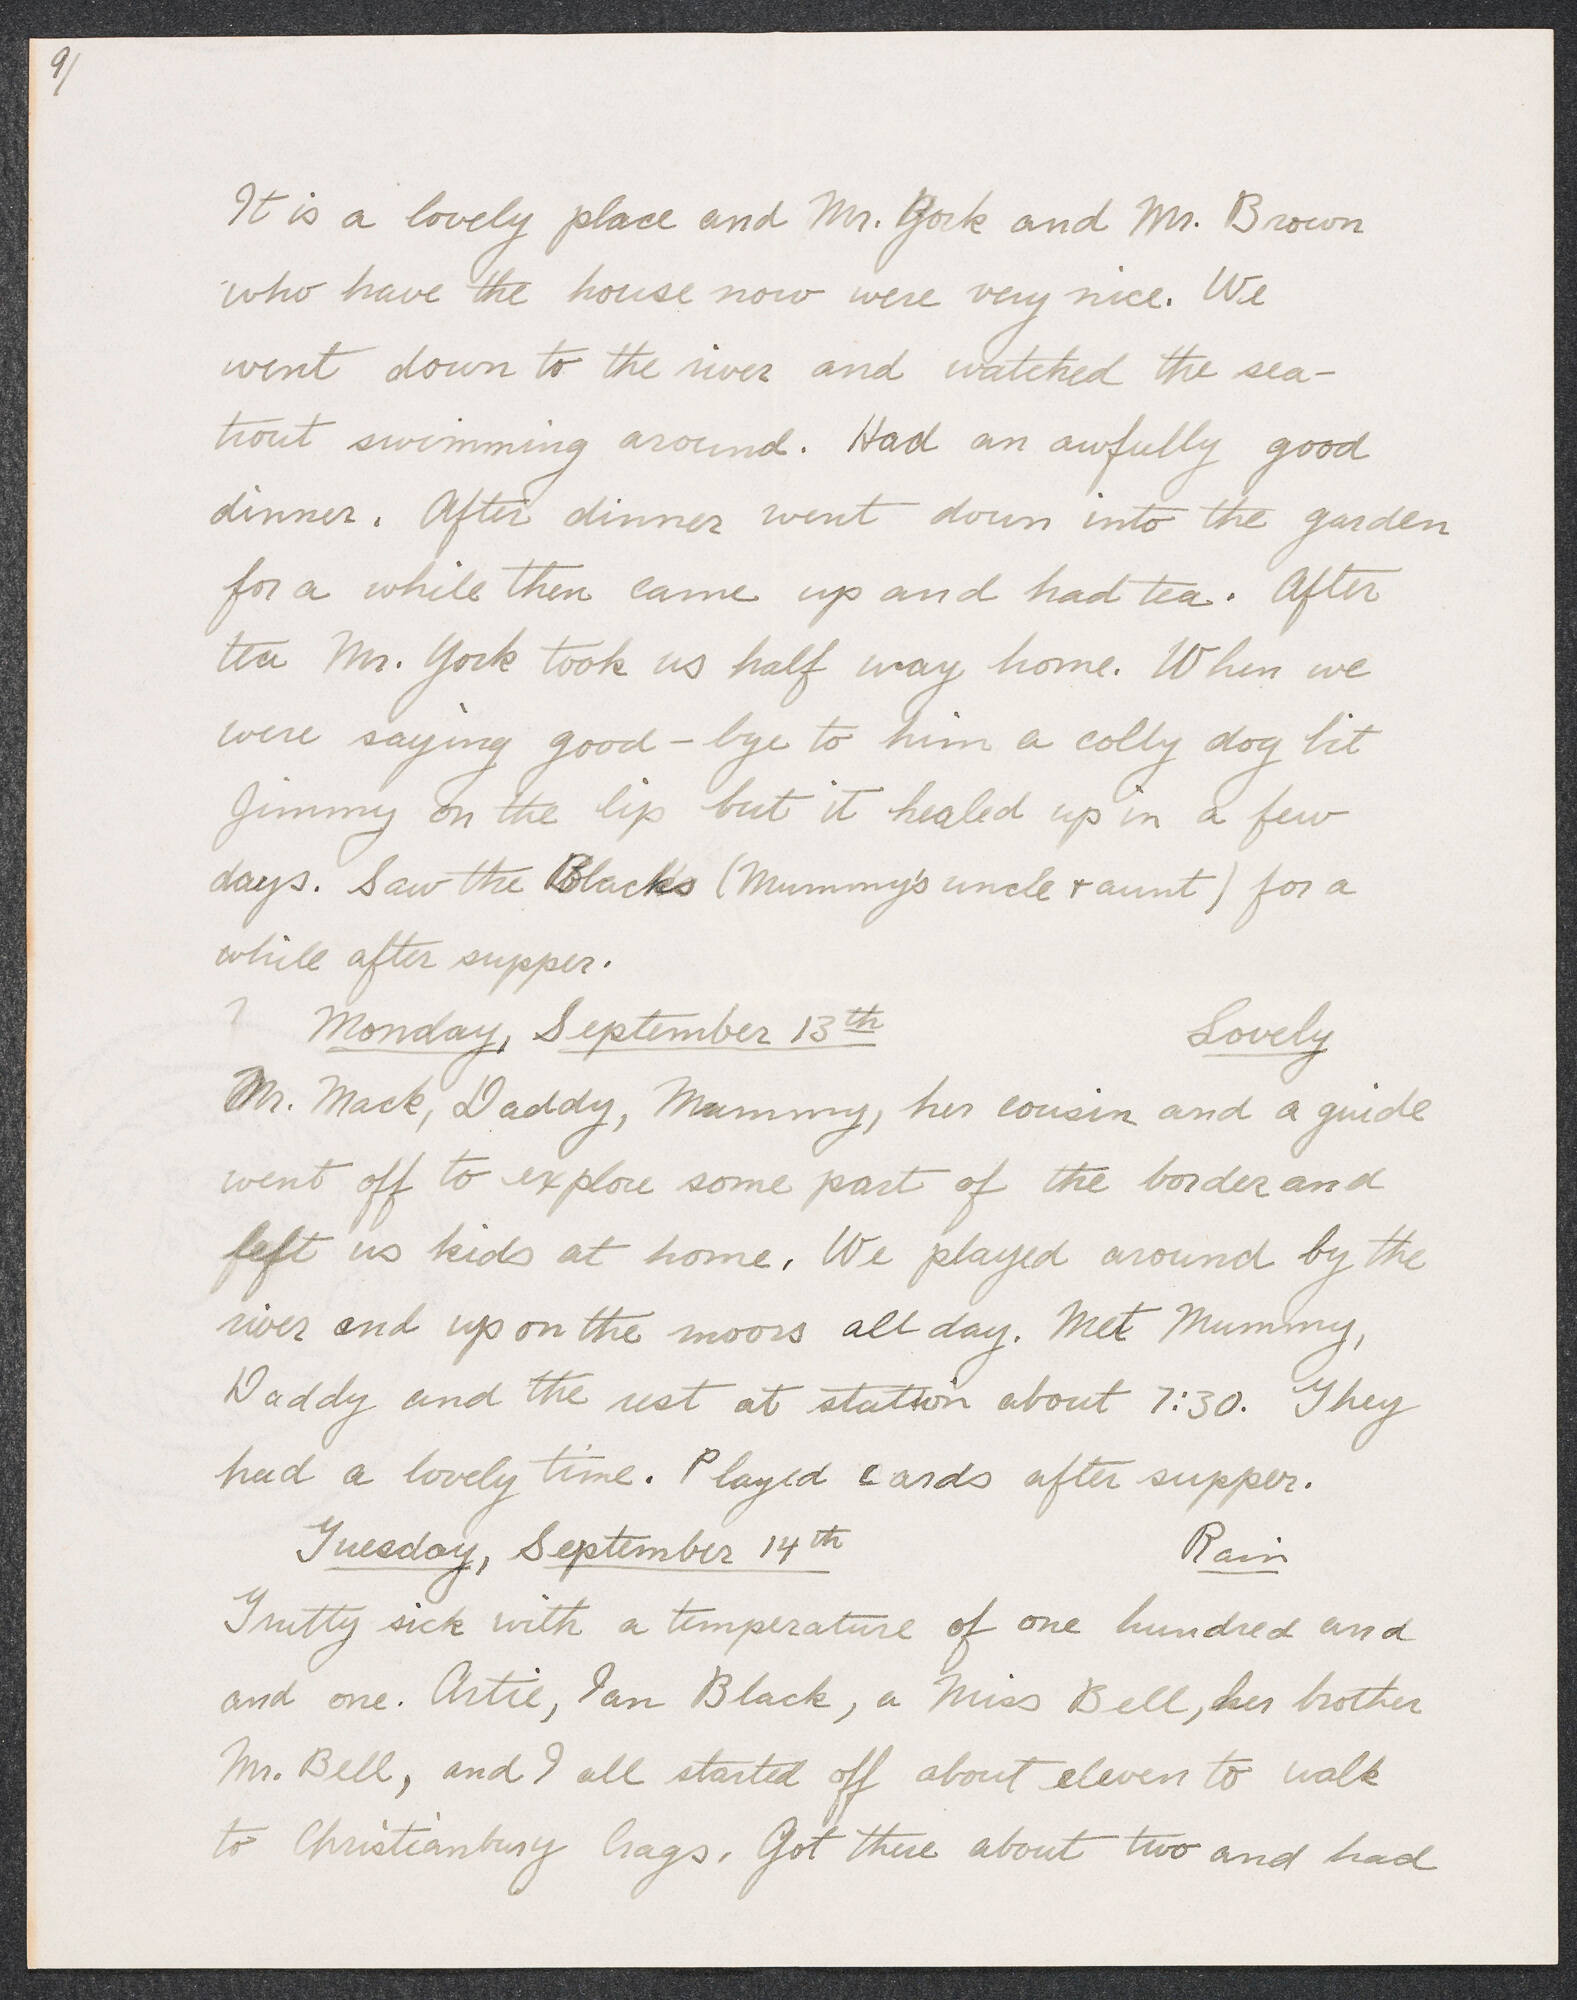 9/
It is a lovely place and Mr. York and Mr. Brown
who have the house now were very nice. We
went down to the river and watched the sea-
trout swimming around. Had an awfully good
dinner. After dinner went down into the garden
for a while then came up and had tea. After
tea Mr. York took us half way home. When we
were saying good-bye to him a colly dog bit
Jimmy on the lip but it healed up in a few
days. Saw the Blacks (Mummy's uncle + aunt) for a
while after supper.
? Monday, September 13th Lovely
Mr. Mack, Daddy, Mummy, her cousin and a guide
went off to explore some part of the border and
left us kids at home. We played around by the
river and up on the moors all day. Met Mummy,
Daddy and the rest at station about 7:30. They
had a lovely time. Played cards after supper.
Tuesday, September 14th Rain
sick with a temperature of one hundred and
and one. Artie, Ian Black, a Miss Bell, her brother
Mr. Bell, and I all started off about eleven to walk
to Christianbury Crags. Got there about two and had